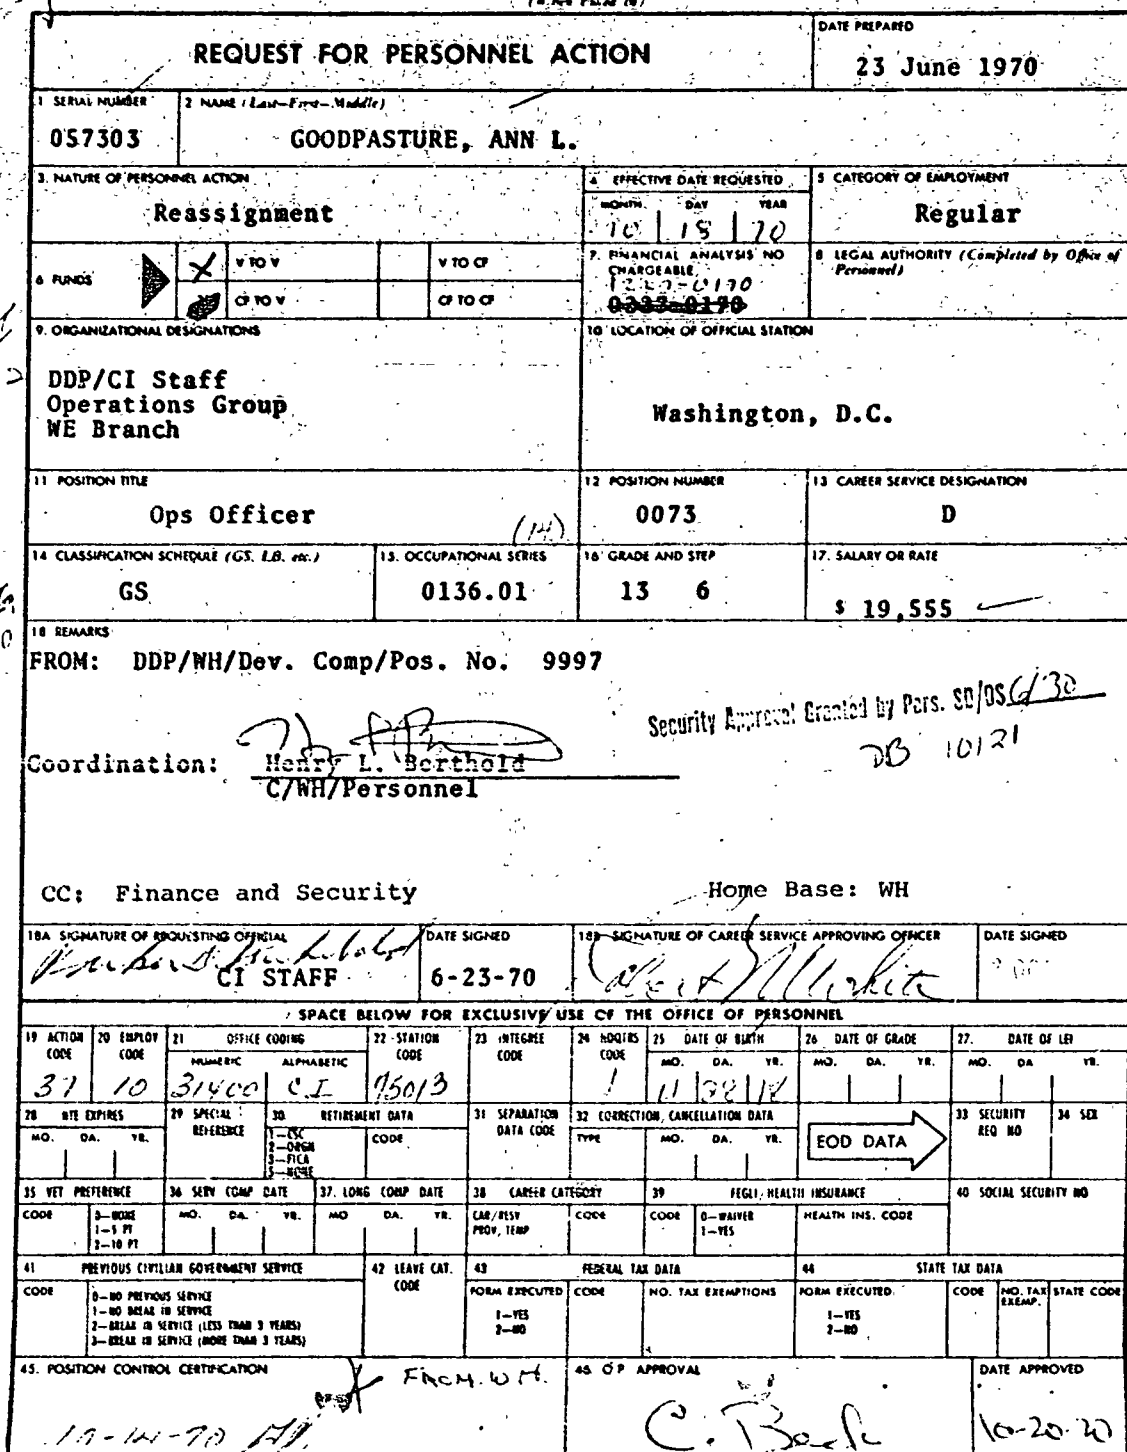 REQUEST FOR PERSONNEL ACTION
DATE PREPARED
23 June 1970
1 SERIAL NUMBER
057303
2 NAME (Last—First—Middle)
GOODPASTURE, ANN L.
3. NATURE OF PERSONNEL ACTION
Reassignment
4 EFFECTIVE DATE REQUESTED
MONTH DAY YEAR
10 18 70
5 CATEGORY OF EMPLOYMENT
Regular
6 FUNDS
X V TO V
V TO CF
CF TO V
CF TO CF
7. FINANCIAL ANALYSIS NO CHARGEABLE
8 LEGAL AUTHORITY (Completed by Office of Personnel)
9. ORGANIZATIONAL DESIGNATIONS
DDP/CI Staff
Operations Group
WE Branch
10 LOCATION OF OFFICIAL STATION
Washington, D.C.
11 POSITION TITLE
Ops Officer
(14)
12 POSITION NUMBER
0073
13 CAREER SERVICE DESIGNATION
D
14 CLASSIFICATION SCHEDULE (GS, LB, etc.)
GS
15. OCCUPATIONAL SERIES
0136.01
16 GRADE AND STEP
13 6
17. SALARY OR RATE
$ 19,555
18 REMARKS
FROM: DDP/WH/Dev. Comp/Pos. No. 9997
Security Approval Granted by Pers. SD/OS 6/30
DB 10121
Coordination: Henry L. Berthold
C/WH/Personnel
CC: Finance and Security
Home Base: WH
18A SIGNATURE OF REQUESTING OFFICIAL
CI STAFF
DATE SIGNED
6-23-70
18B SIGNATURE OF CAREER SERVICE APPROVING OFFICER
DATE SIGNED
SPACE BELOW FOR EXCLUSIVE USE OF THE OFFICE OF PERSONNEL
19 ACTION CODE
37
20 EMPLOY CODE
10
21 OFFICE CODING
NUMERIC ALPHABETIC
31400 CI
22 STATION CODE
75013
23 INTEGREE CODE
24 HDQTRS CODE
1
25 DATE OF BIRTH
MO. DA. YR.
11 28 18
26 DATE OF GRADE
MO. DA. YR.
27. DATE OF LEI
MO. DA YR.
28 NTE EXPIRES
MO. DA. YR.
29 SPECIAL REFERENCE
30 RETIREMENT DATA
1—CSC
2—ORGN
3—FICA
5—NONE
CODE
31 SEPARATION DATA CODE
32 CORRECTION, CANCELLATION DATA
TYPE MO. DA. YR.
EOD DATA
33 SECURITY REQ NO
34 SEX
35 VET PREFERENCE
CODE
0—NONE
1—5 PT
2—10 PT
36 SERV COMP DATE
MO. DA. YR.
37. LONG COMP DATE
MO DA. YR.
38 CAREER CATEGORY
CAR/RESV
PROV, TEMP
CODE
39 FEGLI, HEALTH INSURANCE
CODE
0—WAIVER
1—YES
HEALTH INS. CODE
40 SOCIAL SECURITY NO
41 PREVIOUS CIVILIAN GOVERNMENT SERVICE
CODE
0—NO PREVIOUS SERVICE
1—NO BREAK IN SERVICE
2—BREAK IN SERVICE (LESS THAN 3 YEARS)
3—BREAK IN SERVICE (MORE THAN 3 YEARS)
42 LEAVE CAT. CODE
43 FEDERAL TAX DATA
FORM EXECUTED
1—YES
2—NO
CODE
NO. TAX EXEMPTIONS
44 STATE TAX DATA
FORM EXECUTED
1—YES
2—NO
CODE
NO. TAX EXEMP.
STATE CODE
45. POSITION CONTROL CERTIFICATION
FROM. WH.
10-14-70
46 OP APPROVAL
DATE APPROVED
10-20-70